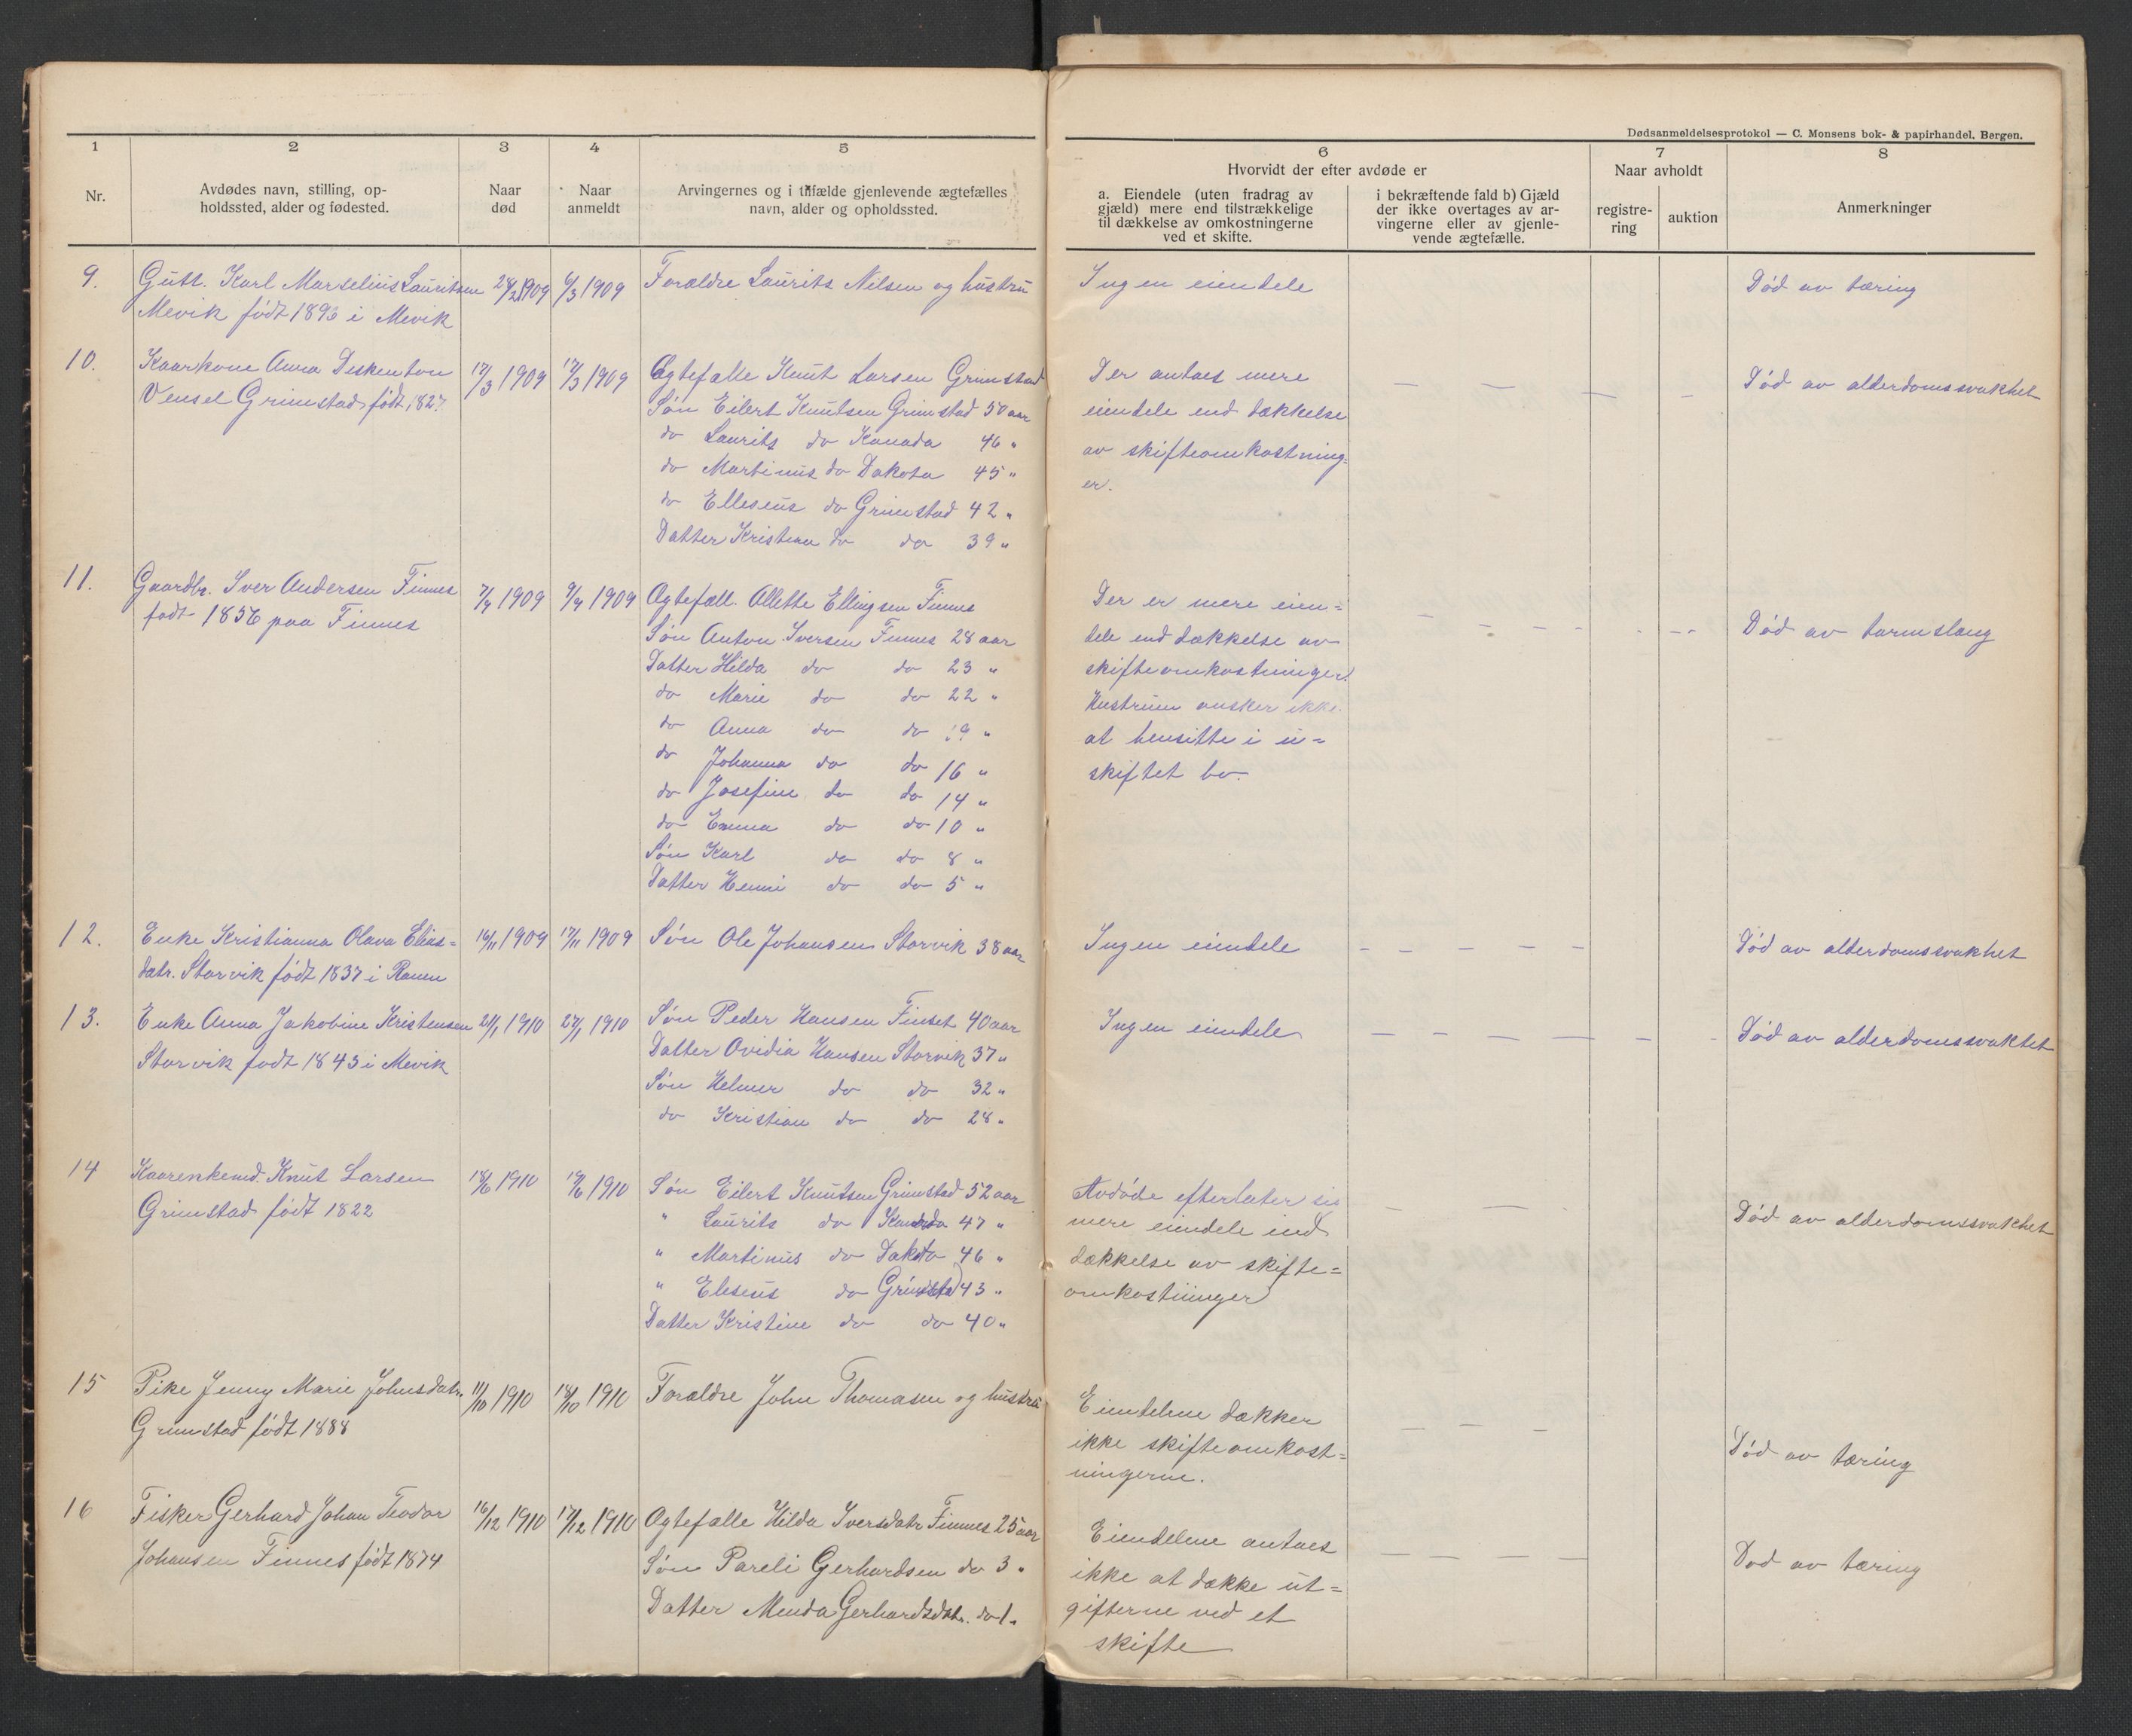 Dødsanmeldelsesprotokol — C. Monsens bok- & papirhandel, Bergen.
1
2
3
4
5
6
7
8
Nr.
Avdødes navn, stilling, op-
holdssted, alder og fødested.
Naar
død
Naar
anmeldt
Arvingernes og i tilfælde gjenlevende ægtefælles
navn, alder og opholdssted.
Hvorvidt der efter avdøde er
a. Eiendele (uten fradrag av
gjæld) mere end tilstrækkelige
til dækkelse av omkostningerne
ved et skifte.
i bekræftende fald b) Gjæld
der ikke overtages av ar-
vingerne eller av gjenle-
vende ægtefælle.
Naar avholdt
registre-
ring
auktion
Anmerkninger
9.
Gutt. Karl Marselius Lauritsen
Mevik født 1896 i Mevik
24/2 1909
6/3 1909
Forældre Laurits Nilsen og hustru
Ingen eiendele
Død av tæring
10.
Kaarkone Anna Deskenton
Vensel Grimstad født 1827
17/3 1909
17/3 1909
Ægtefælle Knut Larsen Grimstad
Søn Eilert Knutsen Grimstad 50 aar
do Laurits do Kanada 46 "
do Martinus do Dakota 45 "
do Elleseus do Grimstad 42 "
Datter Kristian do do 39 "
Der antaes mere
eiendele end dækkelse
av skifteomkostning=
er.
— — — —
Død av alderdomssvakhet
11.
Gaardbr. Iver Andersen Finnes
født 1856 paa Finnes
7/4 1909
9/4 1909
Ægtefæll. Ollette Ellingsen Finnes
Søn Anton Iversen Finnes 28 aar
Datter Hilda do do 23 "
do Marie do do 22 "
do Anna do do 19 "
do Johanna do do 16 "
do Josefine do do 14 "
do Emma do do 10 "
Søn Karl do do 8 "
Datter Henni do do 5 "
Der er mere eien=
dele end dækkelse av
skifteomkostninger.
Hustruen ønsker ikke
at hensitte i u=
skiftet bo.
Død av tarmslæng
12.
Enke Kristianna Olava Elias=
datr. Storvik født 1837 i Ranen
16/11 1909
17/11 1909
Søn Ole Johansen Storvik 38 aar
Ingen eiendele
— — — — —
Død av alderdomssvakhet
13.
Enke Anna Jakobine Kristensen
Storvik født 1843 i Mevik
21/1 1910
27/1 1910
Søn Peder Hansen Finset 40 aar
Datter Ovidia Hansen Storvik 37 "
Søn Helmer do do 32 "
do Kristian do do 28 "
Ingen eiendele
Død av alderdomssvakhet
14
Kaarenkemd. Knut Larsen
Grimstad født 1822
18/6 1910
19/6 1910
Søn Eilert Knutsen Grimstad 52 aar
" Laurits do Kanada 47 "
" Martinus do Dakota 46 "
" Eleseus do Grimstad 43 "
Datter Kristine do do 40 "
Avdøde efterlater sig
mere eiendele end
dækkelse av skifte=
omkostninger
Død av alderdomssvakhet
15
Pike Jenny Marie Johnsdatr.
Grimstad født 1888
11/10 1910
18/10 1910
Forældre John Thomasen og hustru
Eiendelene dækker
ikke skifteomkost=
ningerne.
— — —
Død av tæring
16
Fisker Gerhard Johan Teodor
Johansen Finnes født 1874
16/12 1910
17/12 1910
Ægtefælle Hilda Iversdatr Finnes 25 aar
Søn Pareli Gerhardsen do 3 "
Datter Menda Gerhardsdatr. do 1 "
Eiendelene antaes
ikke at dække ut=
gifterne ved et
skifte
— — — —
Død av tæring